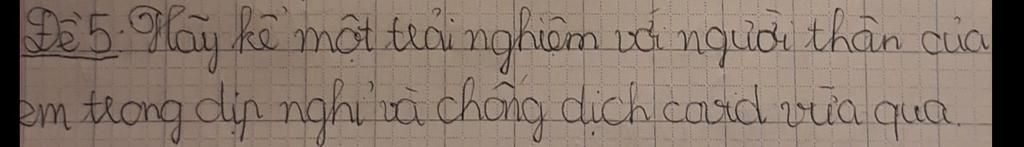 Đề 5: Hãy kể một trải nghiệm với người thân của
em trong dịp nghỉ và chống dịch covid vừa qua.